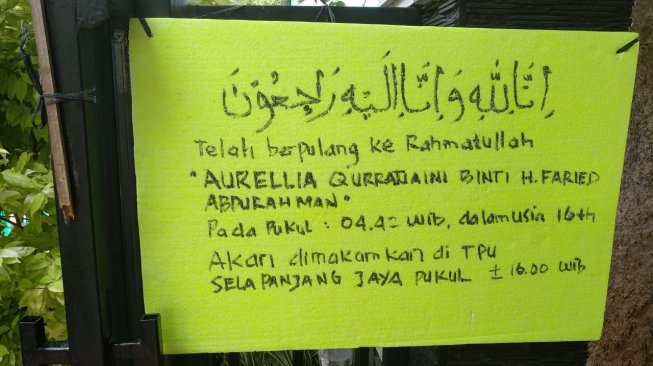 اِنَّا لِلّٰهِ وَاِنَّا اِلَيْهِ رَاجِعُوْنَ
Telah berpulang ke Rahmatullah
"AURELLIA QURRATAAINI BINTI H. FARIED
ABDURAHMAN"
Pada Pukul : 04.42 WIB, dalam usia 16th
Akan dimakamkan di TPU
SELAPANJANG JAYA PUKUL ± 16.00 WIB